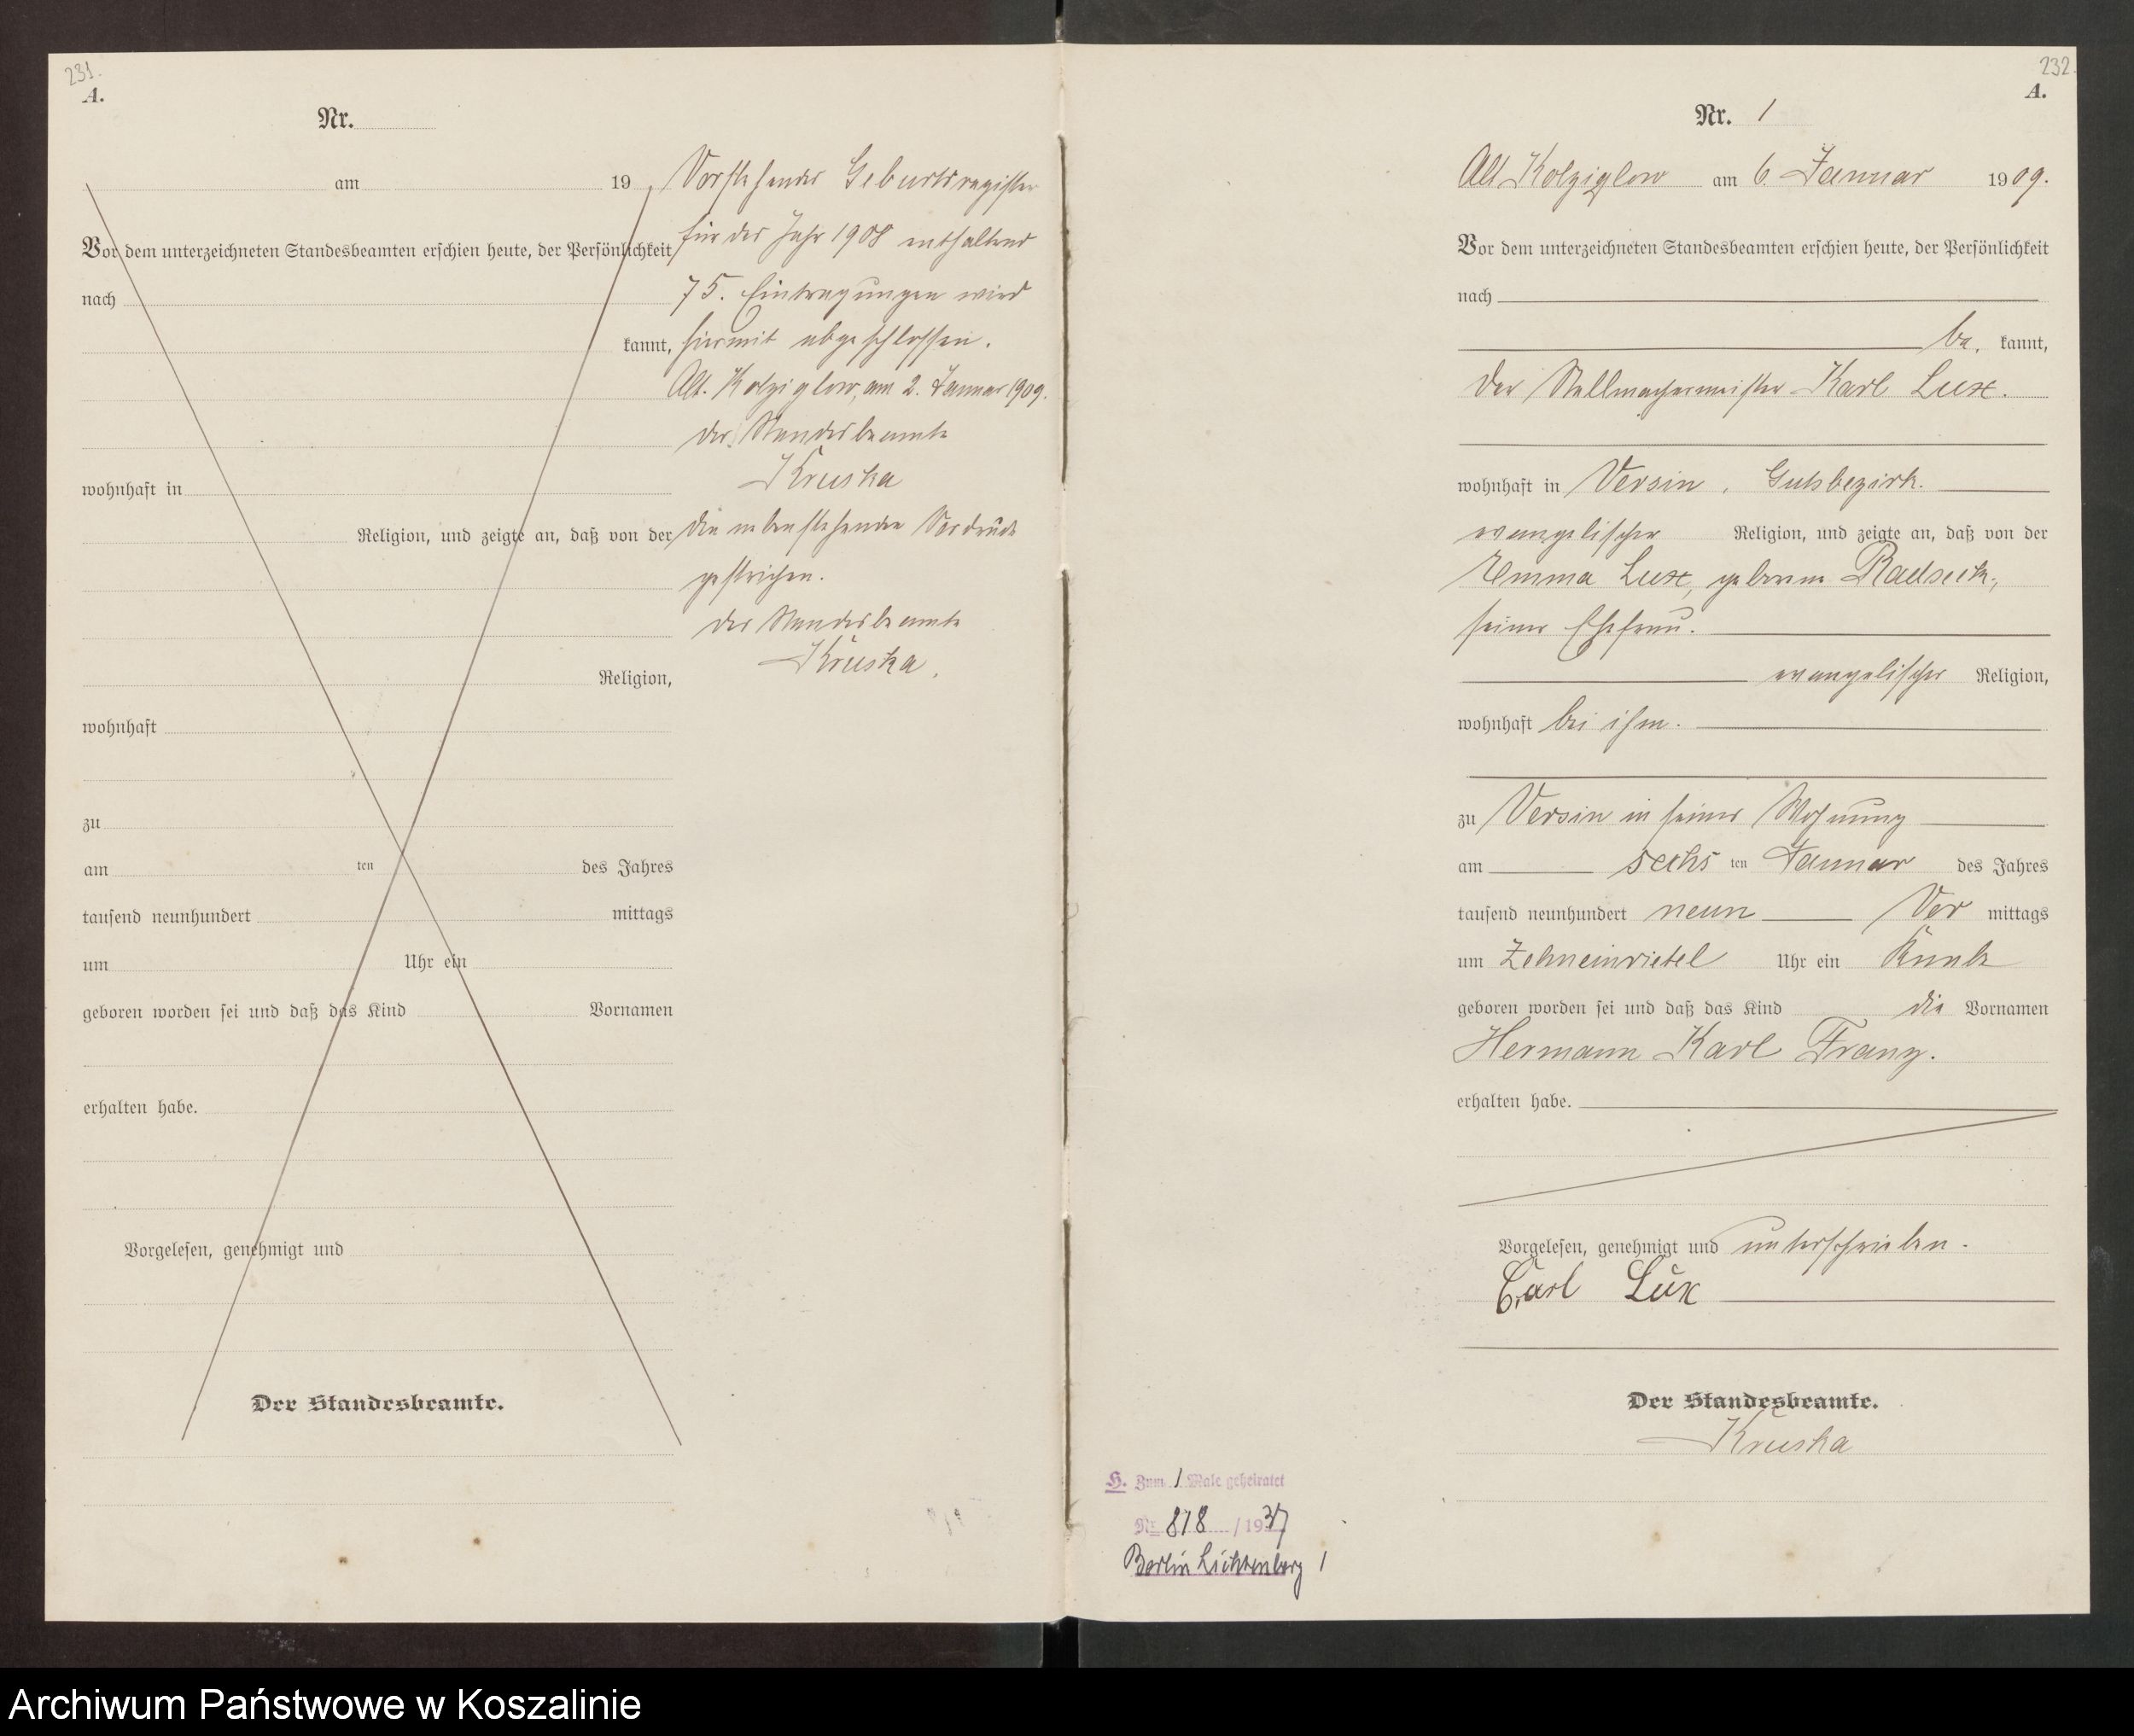 231.
A.
Nr.
am 19
Vor dem unterzeichneten Standesbeamten erschien heute, der Persönlichkeit
nach
kannt,
wohnhaft in
Religion, und zeigte an, daß von der
Religion,
wohnhaft
zu
am ten des Jahres
tausend neunhundert mittags
um Uhr ein
geboren worden sei und daß das Kind Vornamen
erhalten habe.
Vorgelesen, genehmigt und
Der Standesbeamte.
Vorstehendes Geburtsregister
für das Jahr 1908 enthaltend
75. Eintragungen wird
hiermit abgeschlossen.
Alt. Kolziglow, am 2. Januar 1909.
der Standesbeamte
Kruska
Die nebenstehenden Vordruck
gestrichen.
der Standesbeamte
Kruska.
232.
A.
Nr. 1
Alt Kolziglow am 6. Januar 1909.
Vor dem unterzeichneten Standesbeamten erschien heute, der Persönlichkeit
nach
be. kannt,
der Stellmachermeister Karl Lux.
wohnhaft in Versin, Gutsbezirk.
evangelischer Religion, und zeigte an, daß von der
Emma Lux, geborene
seiner Ehefrau.
evangelischer Religion,
wohnhaft bei ihm.
zu Versin in seiner Wohnung
am sechs ten Januar des Jahres
tausend neunhundert neun Vor mittags
um Zehneinviertel Uhr ein Knabe
geboren worden sei und daß das Kind die Vornamen
Hermann Karl Franz.
erhalten habe.
Vorgelesen, genehmigt und unterschrieben.
Carl Lux
Der Standesbeamte.
Kruska
H. Zum 1 Male geheiratet
Nr 818 / 1937
Berlin Lichtenberg 1
Archiwum Państwowe w Koszalinie